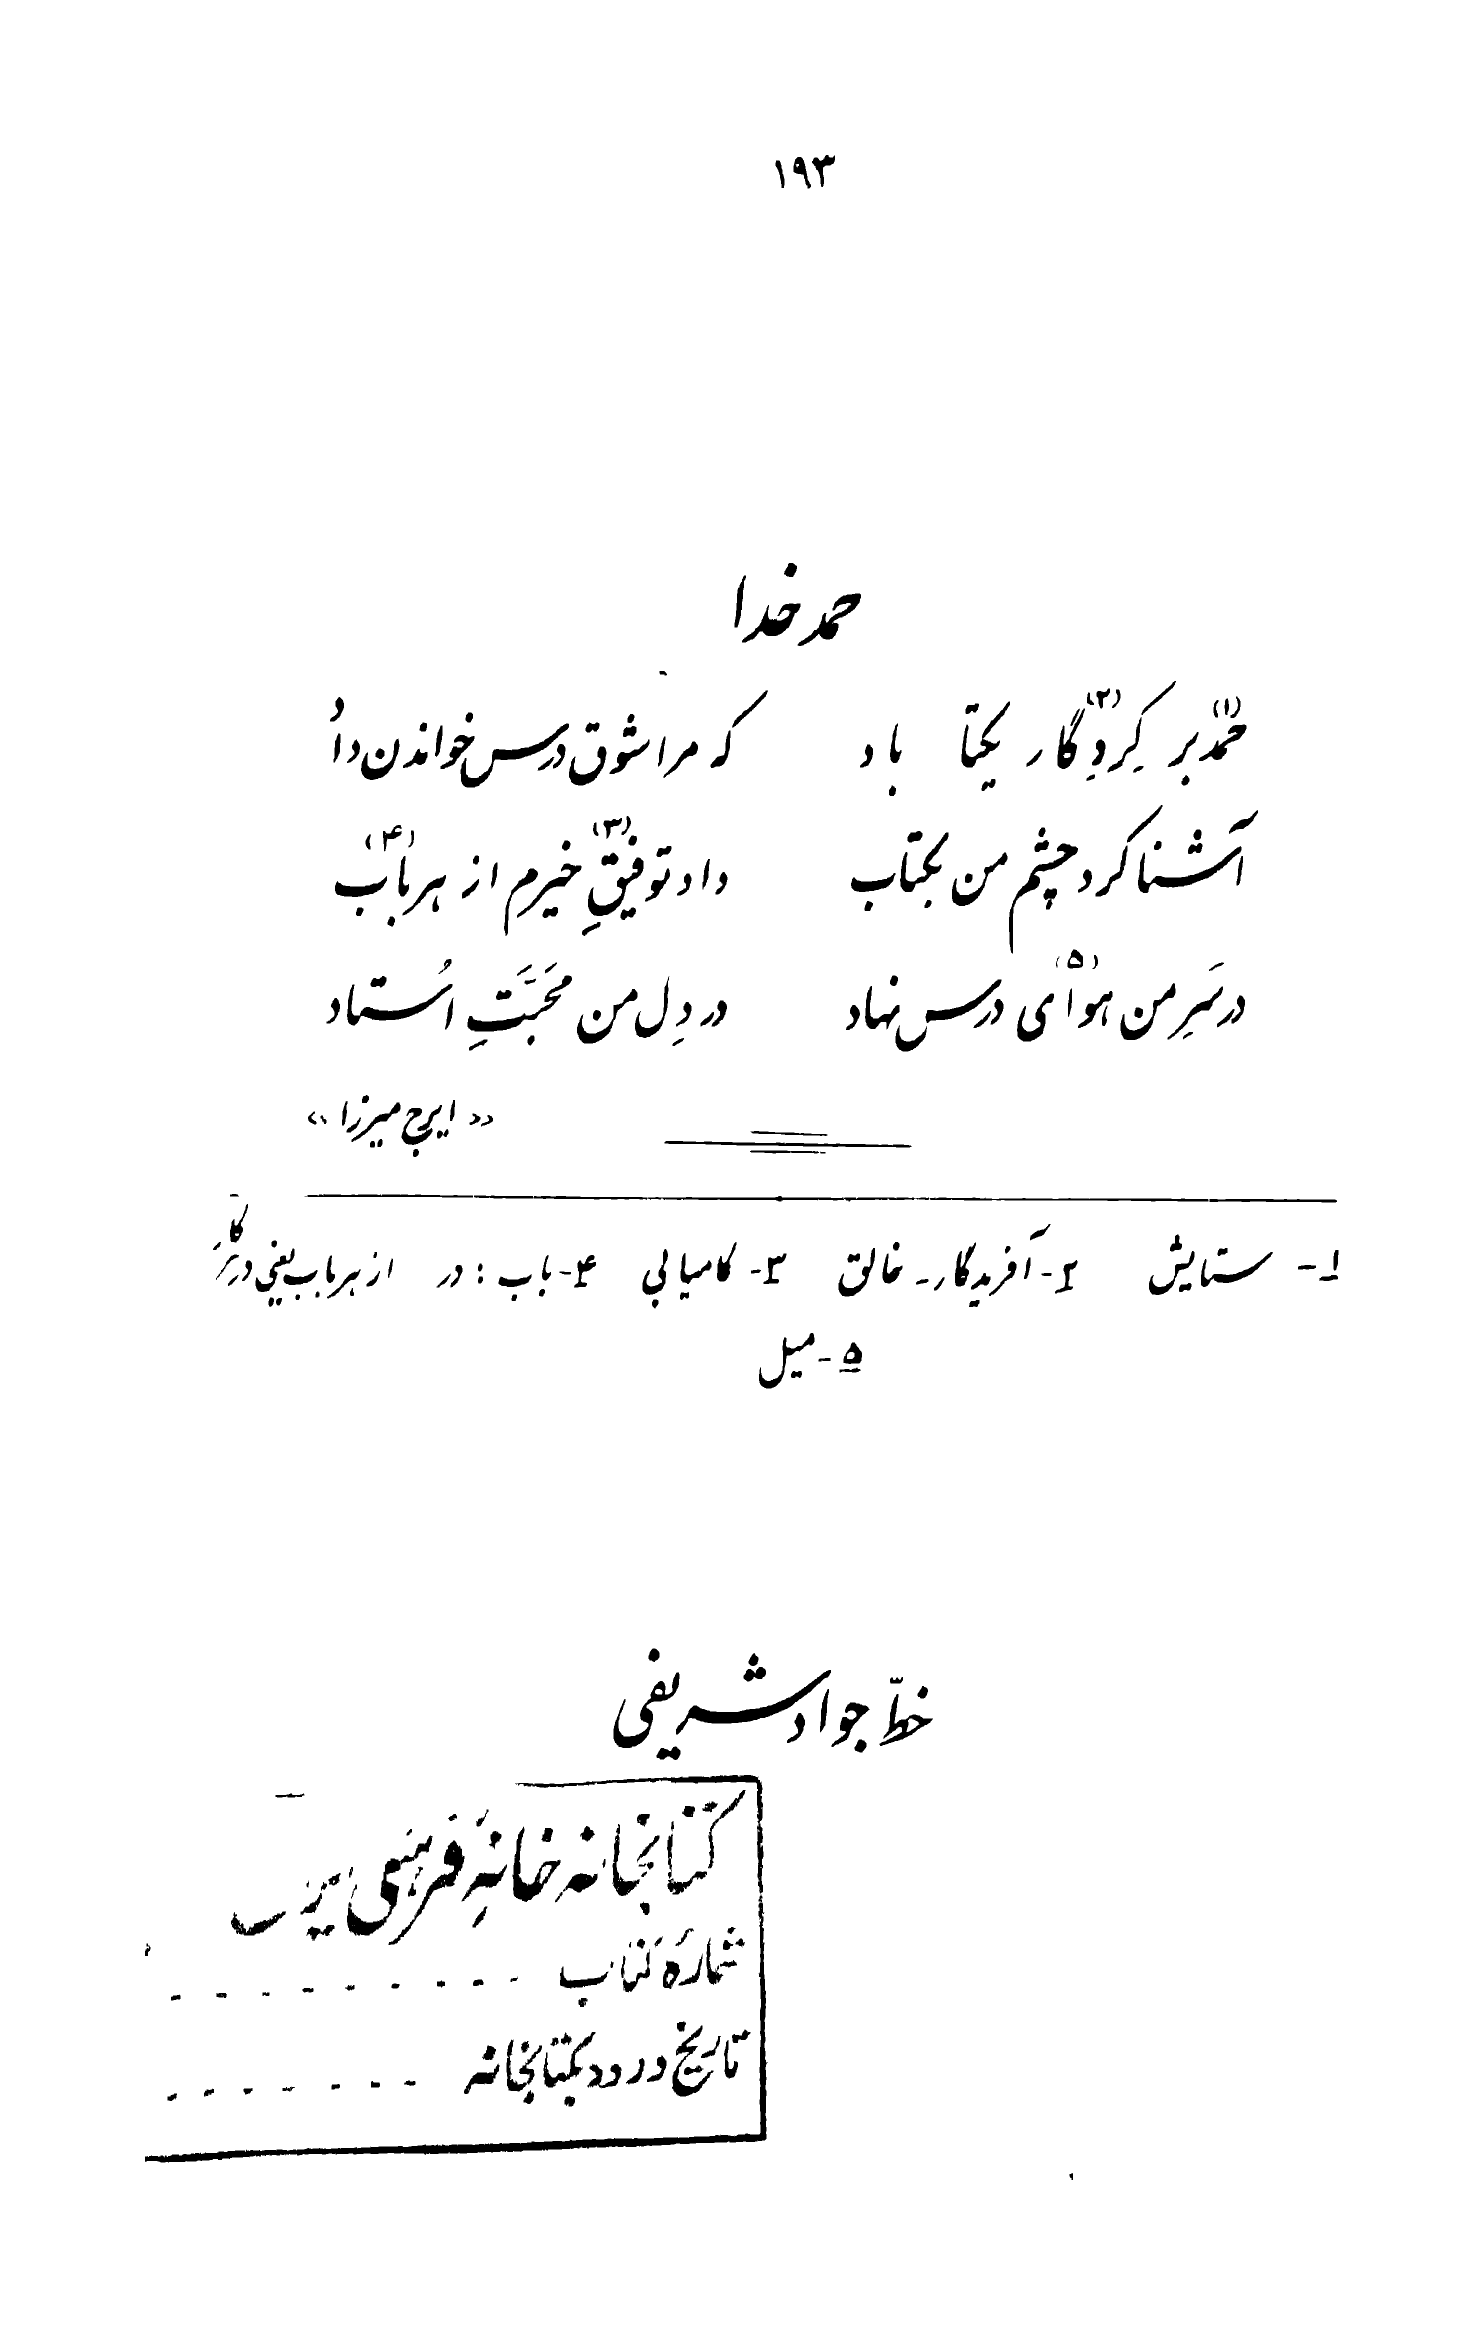 ۱۹۳
حمد خدا
حمد (۱) بر کِردِگار (۲) یکتا باد که مرا شوق درس خواندن داد
آشنا کرد چشم من بکتاب داد توفیقِ (۳) خیرم از هر باب (۴)
در سَرِ من هوای (۵) درس نهاد در دِل من مَحَبَّتِ اُستاد
«ایرج میرزا»
۱- ستایش ۲- آفریدگار - خالق ۳- کامیابی ۴- باب : در از هر باب یعنی در هر کار
۵- میل
خطّ جواد شریفی
کتابخانه خانهٔ فرهنگی
شمارهٔ کتاب . . . . . . . . .
تاریخ ورود بکتابخانه . . . . . . .